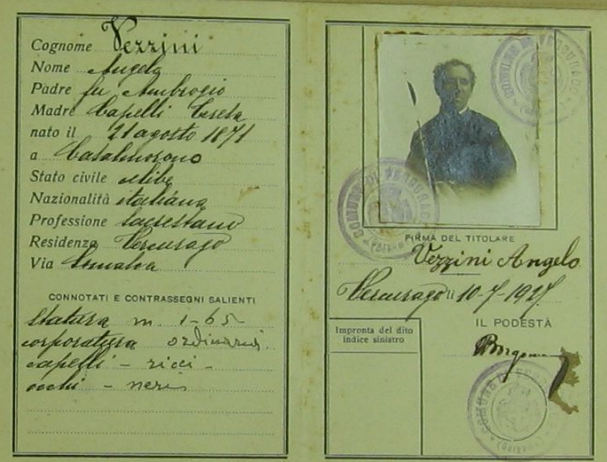 Cognome Vezzini
Nome Angelo
Padre fu Ambrogio
Madre Capelli Teresa
nato il 21 agosto 1871
a Casalmorano
Stato civile celibe
Nazionalità italiana
Professione sacrestano
Residenza Vercurago
Via
CONNOTATI E CONTRASSEGNI SALIENTI
Statura m 1-65
corporatura ordinaria
capelli - ricci -
occhi - neri
FIRMA DEL TITOLARE
Vezzini Angelo
Vercurago li 10-7-1927
IL PODESTÀ
Impronta del dito
indice sinistro